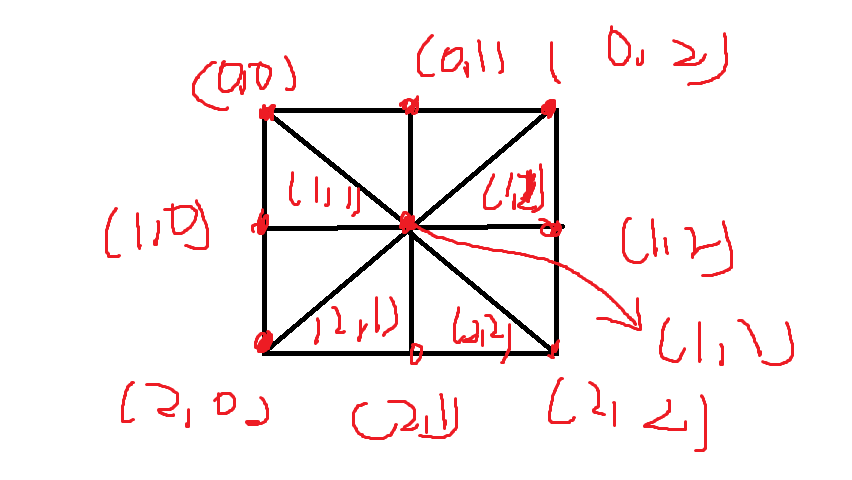 (0,0) (0,1) (0,2)
(1,1) (1,2)
(1,0) (1,2)
(2,1) (2,2) (1,1)
(2,0) (2,1) (2,2)